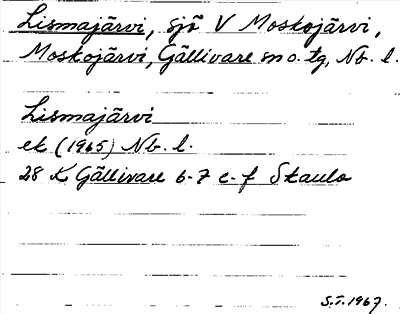 Lismajärvi, sjö V Moskojärvi,
Moskojärvi, Gällivare sn o. tg, Nb. l.
Lismajärvi
ek (1965) Nb. l.
28 K Gällivare 6-7 e-f Skaulo
S.T. 1967.